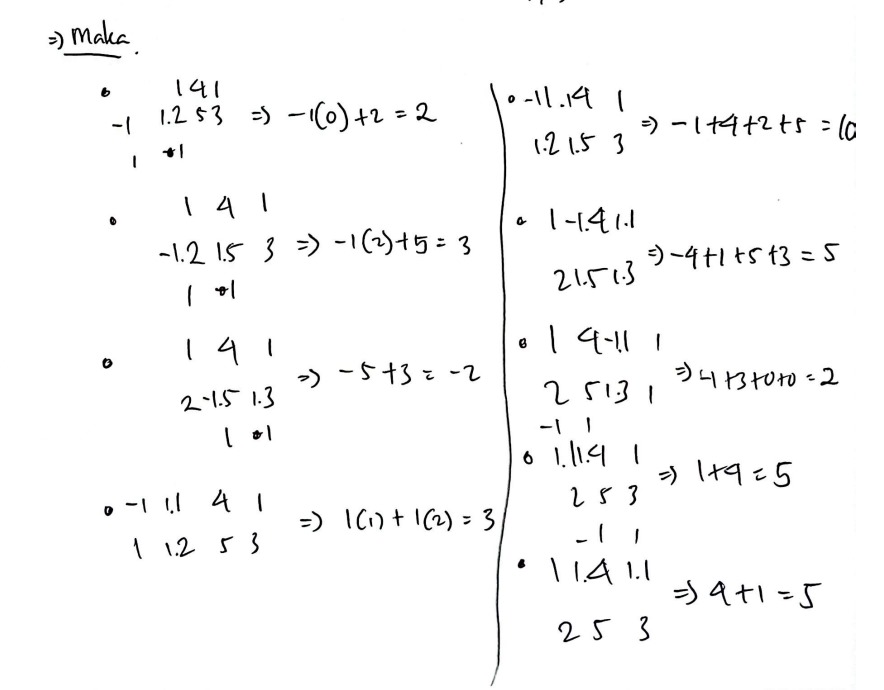 =) Maka.
• 1 4 1
-1 1.2 5 3 => -1(0)+2 = 2
1 1
• 1 4 1
-1.2 1.5 3 => -1(2)+5 = 3
1 1
• 1 4 1
2 -1.5 1.3 => -5+3 = -2
1 1
• -1 1.1 4 1
1 1.2 5 3 => 1(1)+1(2) = 3
• -1 1.14 1
1.2 1.5 3 => -1+4+2+5 = 10
• 1 -1.4 1.1
2 1.5 1.3 => -4+1+5+3 = 5
• 1 4 -1.1 1
2 5 1.3 1 => -1+3+0+0 = 2
-1 1
• 1.1 1.4 1
2 5 3 => 1+4 = 5
-1 1
• 1 1.4 1.1
2 5 3 => 4+1 = 5